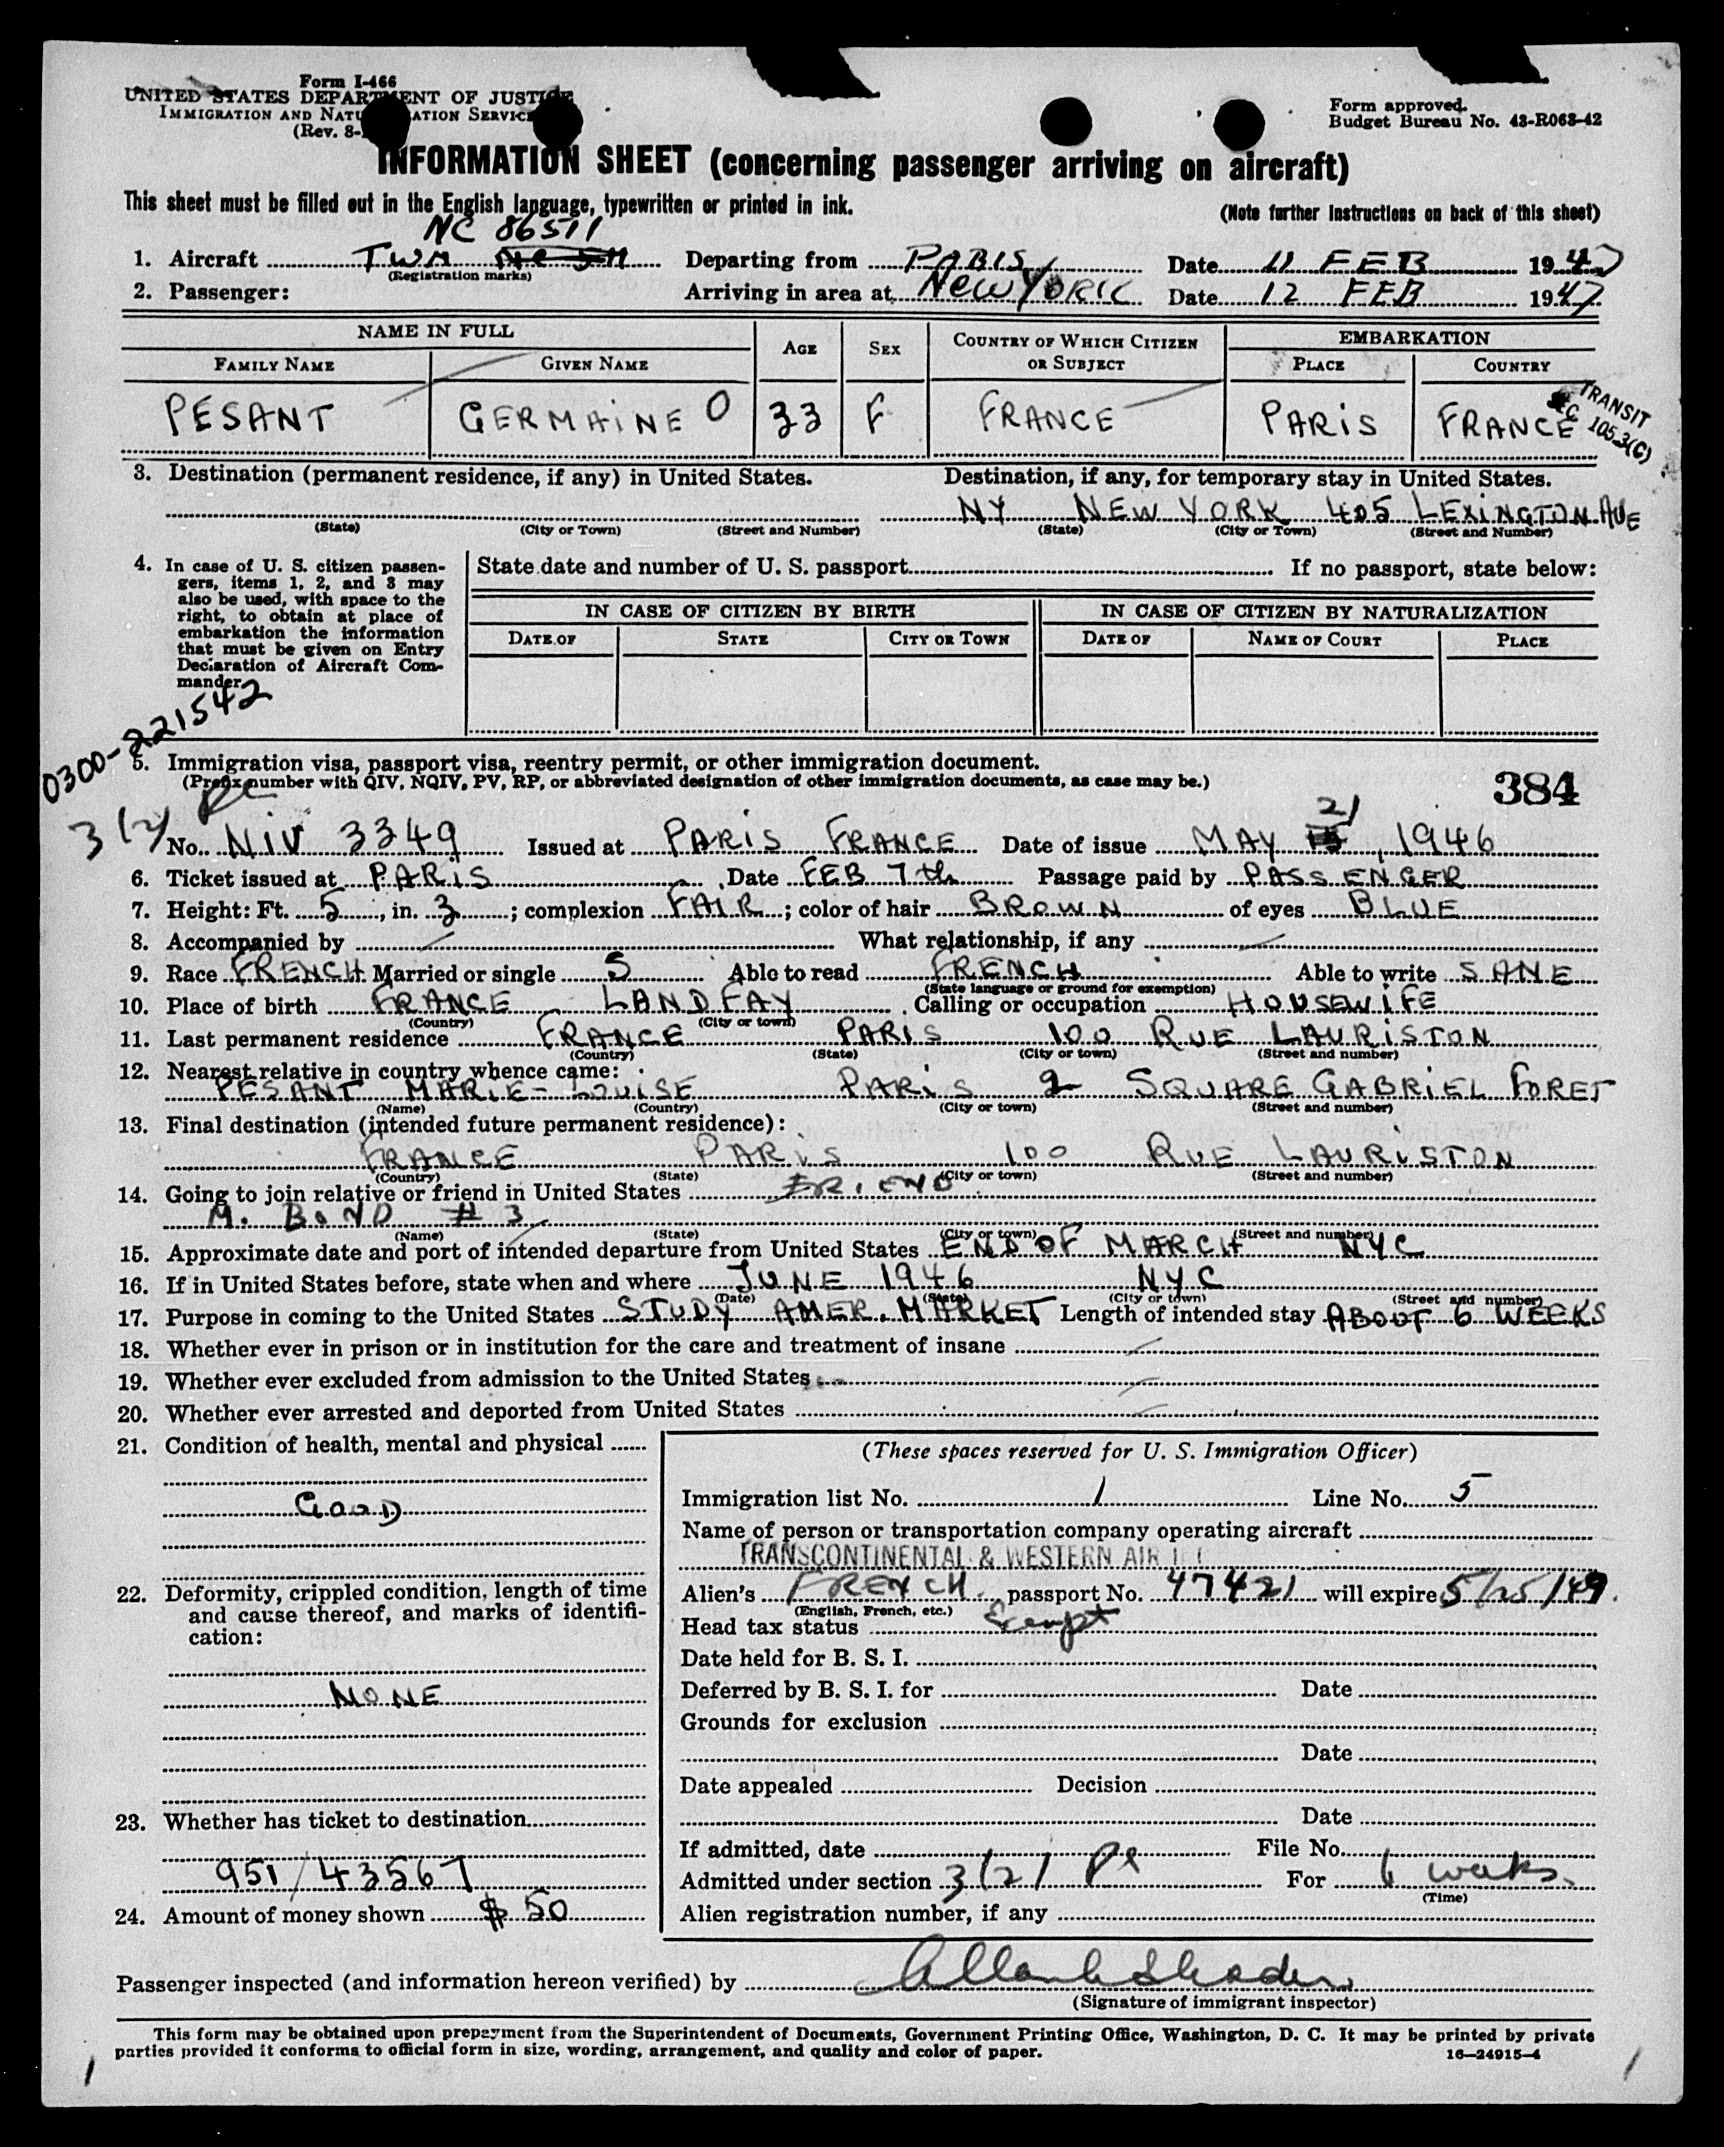 Form I-466
UNITED STATES DEPARTMENT OF JUSTICE
IMMIGRATION AND NATURALIZATION SERVICE
(Rev. 8-
Form approved.
Budget Bureau No. 43-R063-42
INFORMATION SHEET (concerning passenger arriving on aircraft)
This sheet must be filled out in the English language, typewritten or printed in ink.
(Note further instructions on back of this sheet)
NC 86511
1. Aircraft TWA NC 511 Departing from PARIS Date 11 FEB 1947
(Registration marks)
2. Passenger: Arriving in area at NEW YORK Date 12 FEB 1947
NAME IN FULL AGE SEX COUNTRY OF WHICH CITIZEN OR SUBJECT EMBARKATION
FAMILY NAME GIVEN NAME PLACE COUNTRY
PESANT GERMAINE O 33 F FRANCE PARIS FRANCE
TRANSIT
SEC. 105.3(C)
3. Destination (permanent residence, if any) in United States. Destination, if any, for temporary stay in United States.
NY NEW YORK 405 LEXINGTON AVE
(State) (City or Town) (Street and Number) (State) (City or Town) (Street and Number)
4. In case of U. S. citizen passengers, items 1, 2, and 3 may also be used, with space to the right, to obtain at place of embarkation the information that must be given on Entry Declaration of Aircraft Commander.
State date and number of U. S. passport If no passport, state below:
IN CASE OF CITIZEN BY BIRTH IN CASE OF CITIZEN BY NATURALIZATION
DATE OF STATE CITY OR TOWN DATE OF NAME OF COURT PLACE
0300-221542
5. Immigration visa, passport visa, reentry permit, or other immigration document.
(Prefix number with QIV, NQIV, PV, RP, or abbreviated designation of other immigration documents, as case may be.)
384
3(2)
21
No. NIV 3349 Issued at PARIS FRANCE Date of issue MAY , 1946
6. Ticket issued at PARIS Date FEB 7th Passage paid by PASSENGER
7. Height: Ft. 5, in. 3; complexion FAIR; color of hair BROWN of eyes BLUE
8. Accompanied by What relationship, if any
9. Race FRENCH Married or single S Able to read FRENCH Able to write SAME
(State language or ground for exemption)
10. Place of birth FRANCE LANDFAY Calling or occupation HOUSEWIFE
(Country) (City or town)
11. Last permanent residence FRANCE PARIS 100 RUE LAURISTON
(Country) (State) (City or town) (Street and number)
12. Nearest relative in country whence came:
PESANT MARIE-LOUISE PARIS 2 SQUARE GABRIEL FORET
(Name) (Country) (City or town) (Street and number)
13. Final destination (intended future permanent residence):
FRANCE PARIS 100 RUE LAURISTON
(Country) (State) (City or town) (Street and number)
14. Going to join relative or friend in United States FRIEND
M. BOND # 3
(Name) (State) (City or town) (Street and number)
15. Approximate date and port of intended departure from United States END OF MARCH NYC
16. If in United States before, state when and where JUNE 1946 NYC
(Date) (State) (City or town) (Street and number)
17. Purpose in coming to the United States STUDY AMER. MARKET Length of intended stay ABOUT 6 WEEKS
18. Whether ever in prison or in institution for the care and treatment of insane
19. Whether ever excluded from admission to the United States
20. Whether ever arrested and deported from United States
21. Condition of health, mental and physical
GOOD
22. Deformity, crippled condition, length of time and cause thereof, and marks of identification:
NONE
23. Whether has ticket to destination
951/43567
24. Amount of money shown $ 50
(These spaces reserved for U. S. Immigration Officer)
Immigration list No. 1 Line No. 5
Name of person or transportation company operating aircraft
TRANSCONTINENTAL & WESTERN AIR
Alien's FRENCH passport No. 47421 will expire 5/25/49.
(English, French, etc.)
Head tax status Exempt
Date held for B. S. I.
Deferred by B. S. I. for Date
Grounds for exclusion
Date
Date appealed Decision
Date
If admitted, date File No.
Admitted under section 3(2) For 6 weeks.
(Time)
Alien registration number, if any
Passenger inspected (and information hereon verified) by
(Signature of immigrant inspector)
This form may be obtained upon prepayment from the Superintendent of Documents, Government Printing Office, Washington, D. C. It may be printed by private
parties provided it conforms to official form in size, wording, arrangement, and quality and color of paper.
16—24915-4